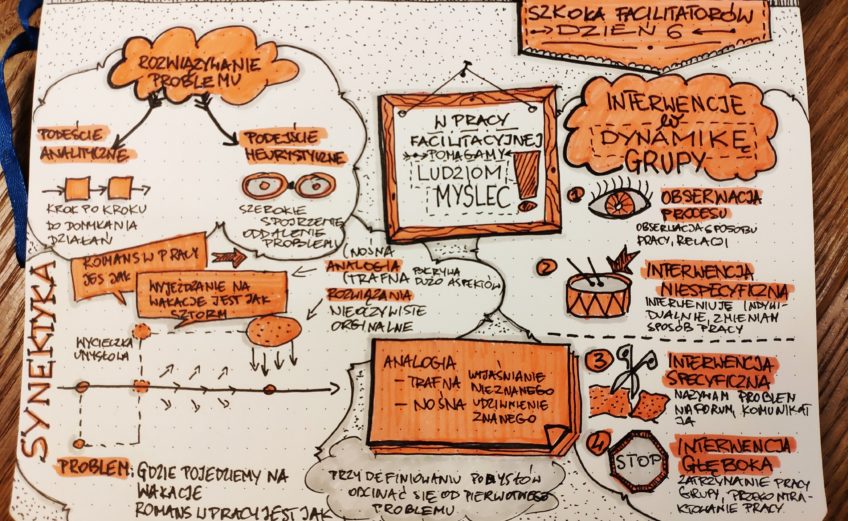 SZKOŁA FACILITATORÓW
DZIEŃ 6
ROZWIĄZYWANIE
PROBLEMU
PODEŚCIE
ANALITYCZNE
PODEJŚCIE
HEURYSTYCZNE
KROK PO KROKU
DO DOMYKANIA
DZIAŁAŃ
SZEROKIE
SPOJRZENIE
ODDALENIE
PROBLEMU
W PRACY
FACILITACYJNEJ
POMAGAMY
LUDZIOM
MYŚLEĆ
INTERWENCJE
W
DYNAMIKĘ
GRUPY
1
OBSERWACJA
PROCESU
OBSERWACJA SPOSOBU
PRACY, RELACJI
2
INTERWENCJA
NIESPECYFICZNA
INTERWENIUJĘ INDYWI-
DUALNIE, ZMIENIAM
SPOSÓB PRACY
3
INTERWENCJA
SPECYFICZNA
NAZYWAM PROBLEM
NA FORUM, KOMUNIKAT
JA
4
STOP
INTERWENCJA
GŁĘBOKA
ZATRZYMANIE PRACY
GRUPY, PRZEKONTRA-
KTOWANIE PRACY
SYNEKTYKA
ROMANS W PRACY
JES JAK
WYJEŻDŻANIE NA
WAKACJE JEST JAK
SZTORM
(NOŚNA
ANALOGIA
(TRAFNA
POKRYWA
DUŻO ASPEKTÓW
ROZWIĄZANIA
NIEOCZYWISTE
ORGINALNE
WYCIECZKA
UMYSŁOWA
ANALOGIA
- TRAFNA WYJAŚNIANIE
NIEZNANEGO
- NOŚNA UDZIWNIENIE
ZNANEGO
PROBLEM: GDZIE POJEDZIEMY NA
WAKACJE
ROMANS W PRACY JEST JAK
PRZY DEFINIOWANIU POMYSŁÓW
ODCINAĆ SIĘ OD PIERWOTNEGO
PROBLEMU